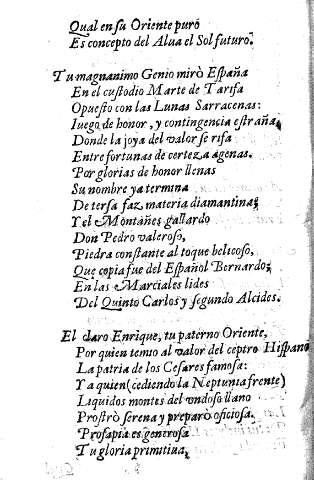 Qual en su Oriente puro
Es concepto del Alua el Sol futuro.
Tu magnanimo Genio mirò España
En el custodio Marte de Tarifa
Opuesto con las Lunas Sarracenas:
Iuego de honor, y contingencia estraña,
Donde la joya del valor se rifa
Entre fortunas de certeza agenas.
Por glorias de honor llenas
Su nombre ya termina
De tersa faz materia diamantina;
Y el Montañes gallardo
Don Pedro valeroso,
Piedra constante al toque belicoso,
Que copia fue del Español Bernardo;
En las Marciales lides
Del Quinto Carlos y segundo Alcides.
El claro Enrique, tu paterno Oriente,
Por quien temio al valor del ceptro Hispano
La patria de los Cesares famosa:
Y a quien (cediendo la Neptunia frente)
Liquidos montes del vndoso llano
Prostrò serena y preparò oficiosa.
Prosapia es generosa
Tu gloria primitiua,